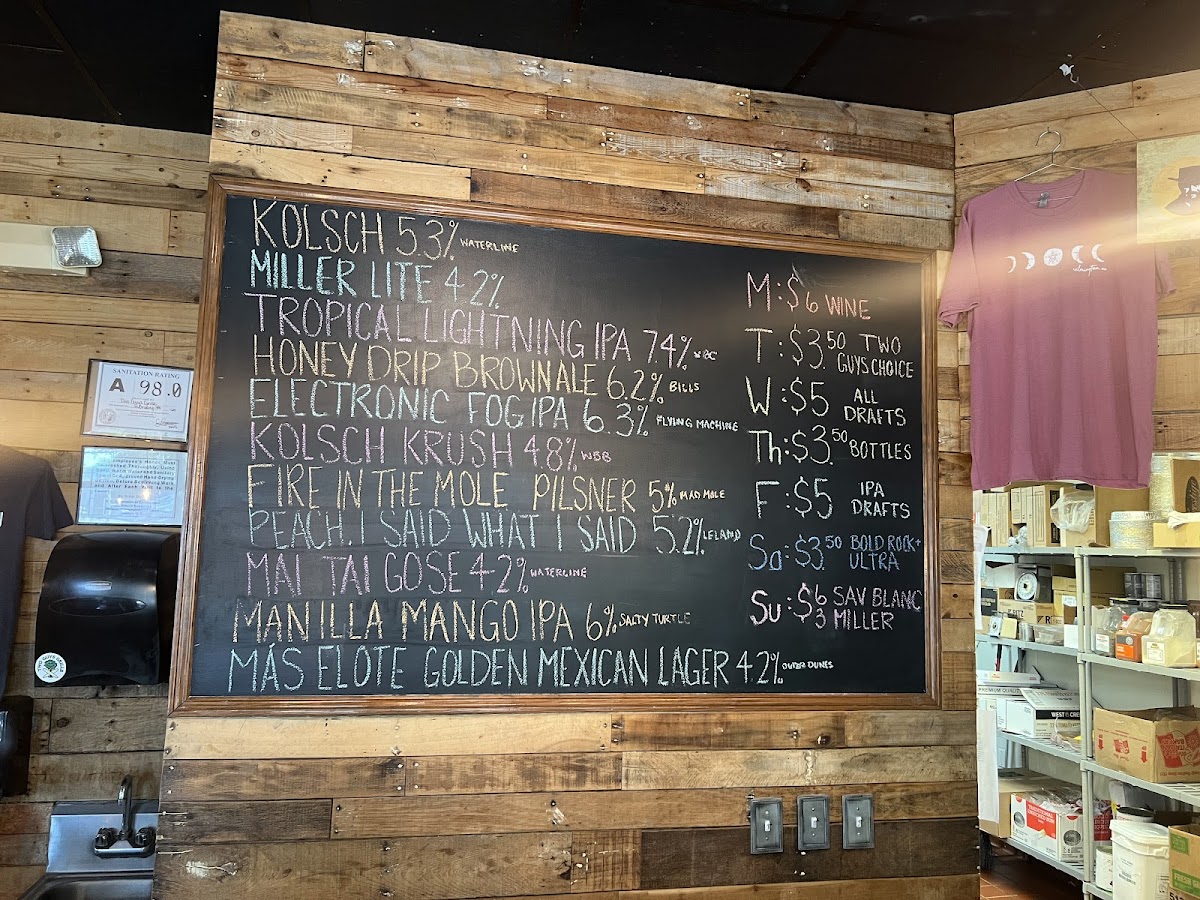 KOLSCH 5.3% WATERLINE
MILLER LITE 4.2%
TROPICAL LIGHTNING IPA 7.4%
HONEY DRIP BROWN ALE 6.2% BILLS
ELECTRONIC FOG IPA 6.3% FLYING MACHINE
KOLSCH KRUSH 4.8% WBB
FIRE IN THE MOLE PILSNER 5% MAD MOLE
PEACH. I SAID WHAT I SAID 5.2% LELAND
MAI TAI GOSE 4.2% WATERLINE
MANILLA MANGO IPA 6% SALTY TURTLE
MÁS ELOTE GOLDEN MEXICAN LAGER 4.2% OUTER DUNES
M: $6 WINE
T: $3.50 TWO
GUYS CHOICE
W: $5 ALL
DRAFTS
Th: $3.50 BOTTLES
F: $5 IPA
DRAFTS
Sa: $3.50 BOLD ROCK +
ULTRA
Su: $6 SAV BLANC
3 MILLER
SANITATION RATING
A 98.0